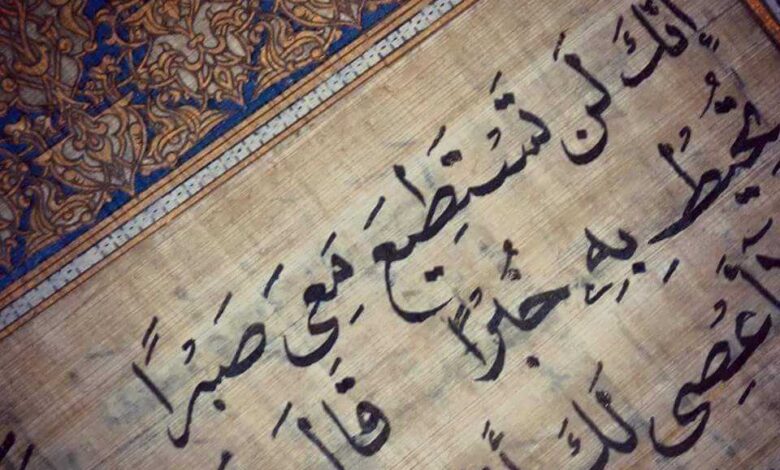 إِنَّكَ لَن تَسْتَطِيعَ مَعِىَ صَبْرًا
تُحِيطُ بِهِ خُبْرًا قَالَ
أَعْصِى لَكَ